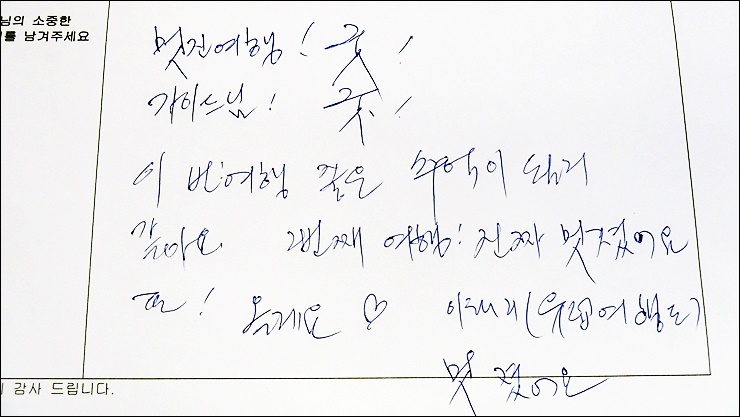 님의 소중한
를 남겨주세요
멋진여행! 굿!
가이스님! 굿!
이번여행 같은 추억이 될거
같아요 2번째 여행! 진짜 멋졌어요
또! 올게요 ♡ 이태리(유럽여행도)
멋졌어요
감사 드립니다.